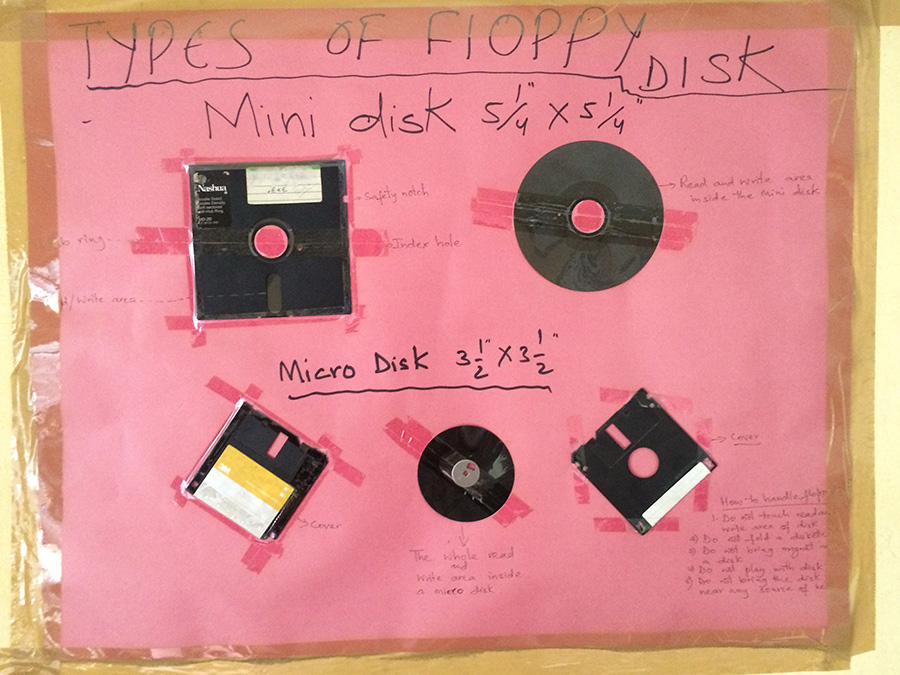 TYPES OF FLOPPY DISK
Mini disk 5 1/4" X 5 1/4"
Nashua
Safety notch
Read and write area
inside the Mini disk
ring
Index hole
/Write area
Micro Disk 3 1/2" X 3 1/2"
3M
Cover
Cover
The whole read
and
write area inside
a micro disk
How to handle
1. Do not touch
write area of disk
2) Do not fold a
3) Do not bring magnet
a disk
4) Do not play with disk
5) Do not bring the disk
near any source of